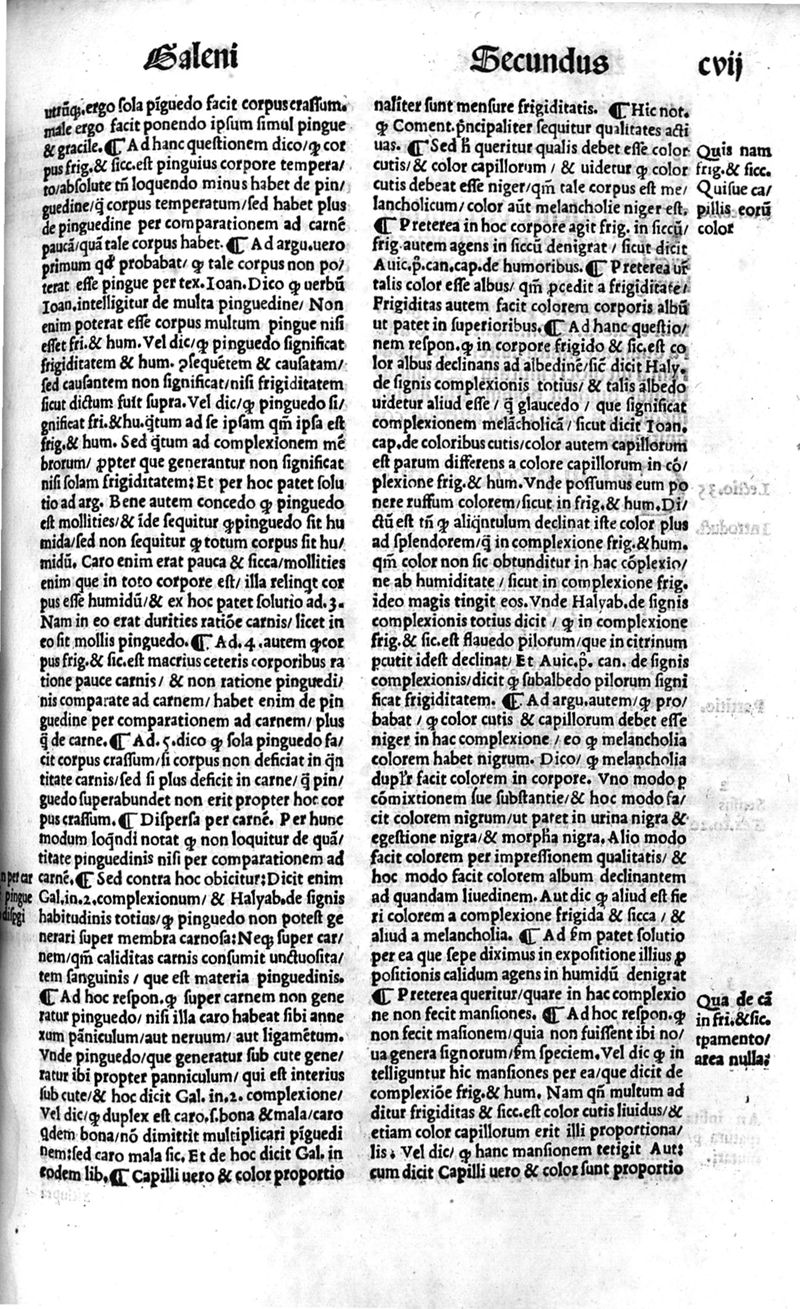 Galeni
Secundus
cvij
utrūq̄, ergo sola pīguedo facit corpus crassum.
male ergo facit ponendo ipsum simul pingue
& gracile. ¶ Ad hanc questionem dico/ ꝙ cor
pus frig. & sicc. est pinguius corpore tempera/
to/ absolute tn̄ loquendo minus habet de pin/
guedine/ q̄ corpus temperatum/ sed habet plus
de pinguedine per comparationem ad carnē
paucā/ quā tale corpus habet. ¶ Ad argu. uero
primum qđ probabat/ ꝙ tale corpus non po/
terat esse pingue per tex. Ioan. Dico ꝙ uerbū
Ioan. intelligitur de multa pinguedine/ Non
enim poterat esse corpus multum pingue nisi
esset fri. & hum. Vel dic/ ꝙ pinguedo significat
frigiditatem & hum. ꝯsequētem & causatam/
sed causantem non significat/ nisi frigiditatem
sicut dictum fuit supra. Vel dic/ ꝙ pinguedo si/
gnificat fri. & hu. q̄tum ad se ipsam qm̄ ipsa est
frig. & hum. Sed q̄tum ad complexionem mē
brorum/ ꝓpter que generantur non significat
nisi solam frigiditatem: Et per hoc patet solu
tio ad arg. Bene autem concedo ꝙ pinguedo
est mollities/ & īde sequitur ꝙ pinguedo sit hu
mida/ sed non sequitur ꝙ totum corpus sit hu/
midū. Caro enim erat pauca & sicca/ mollities
enim que in toto corpore est/ illa relinqt cor
pus esse humidū/ & ex hoc patet solutio ad. 3.
Nam in eo erat durities ratiōe carnis/ licet in
eo sit mollis pinguedo. ¶ Ad. 4. autem ꝙ cor
pus frig. & sic. est macrius ceteris corporibus ra
tione pauce carnis/ & non ratione pinguedi/
nis comparate ad carnem/ habet enim de pin
guedine per comparationem ad carnem/ plus
q̄ de carne. ¶ Ad. 5. dico ꝙ sola pinguedo fa/
cit corpus crassum/ si corpus non deficiat in q̄n
titate carnis/ sed si plus deficit in carne/ q̄ pin/
guedo superabundet non erit propter hoc cor
pus crassum. ¶ Dispersa per carnē. Per hunc
modum loqndi notat ꝙ non loquitur de quā/
titate pinguedinis nisi per comparationem ad
carnē. ¶ Sed contra hoc obicitur: Dicit enim
Gal. in. 2. complexionum/ & Halyab. de signis
habitudinis totius/ ꝙ pinguedo non potest ge
nerari super membra carnosa: Neqꝫ super car/
nem/ qm̄ caliditas carnis consumit unctuosita/
tem sanguinis/ que est materia pinguedinis.
¶ Ad hoc respon. ꝙ super carnem non gene
ratur pinguedo/ nisi illa caro habeat sibi anne
xum pāniculum/ aut neruum/ aut ligamētum.
Vnde pinguedo/ que generatur sub cute gene/
ratur ibi propter panniculum/ qui est interius
sub cute/ & hoc dicit Gal. in. 2. complexione/
Vel dic/ ꝙ duplex est caro. s. bona & mala/ caro
qdem bona/ nō dimittit multiplicari pīguedi
nem: sed caro mala sic. Et de hoc dicit Gal. in
eodem lib. ¶ Capilli uero & color proportio
n per car
pingue
naliter sunt mensure frigiditatis. ¶ Hic not.
ꝙ Coment. pn̄cipaliter sequitur qualitates acti
uas. ¶ Sed h̄ queritur qualis debet esse color
cutis/ & color capillorum/ & uidetur ꝙ color
cutis debeat esse niger/ qm̄ tale corpus est me/
lancholicum/ color aūt melancholie niger est.
¶ Preterea in hoc corpore agit frig. in siccū/
frig. autem agens in siccū denigrat/ sicut dicit
Auic. p̄. can. cap. de humoribus. ¶ Preterea ur̄
talis color esse albus/ qm̄ ꝓcedit a frigiditate/
Frigiditas autem facit colorem corporis albū
ut patet in superioribus. ¶ Ad hanc questio/
nem respon. ꝙ in corpore frigido & sic. est co
lor albus declinans ad albedinē/ sic̄ dicit Haly.
de signis complexionis totius/ & talis albedo
uidetur aliud esse/ q̄ glaucedo/ que significat
complexionem melācholicā/ sicut dicit Ioan.
cap. de coloribus cutis/ color autem capillorum
est parum differens a colore capillorum in cō/
plexione frig. & hum. Vnde possumus eum po
nere ruffum colorem/ sicut in frig. & hum. Di/
ctū est tn̄ ꝙ aliqntulum declinat iste color plus
ad splendorem/ q̄ in complexione frig. & hum.
qm̄ color non sic obtunditur in hac cōplexio/
ne ab humiditate/ sicut in complexione frig.
ideo magis tingit eos. Vnde Halyab. de signis
complexionis totius dicit/ ꝙ in complexione
frig. & sic. est flauedo pilorum/ que in citrinum
pcutit idest declinat/ Et Auic. p̄. can. de signis
complexionis/ dicit ꝙ subalbedo pilorum signi
ficat frigiditatem. ¶ Ad argu. autem/ ꝙ pro/
babat/ ꝙ color cutis & capillorum debet esse
niger in hac complexione/ eo ꝙ melancholia
colorem habet nigrum. Dico/ ꝙ melancholia
duplr̄ facit colorem in corpore. Vno modo ꝑ
cōmixtionem sue substantie/ & hoc modo fa/
cit colorem nigrum/ ut patet in urina nigra &
egestione nigra/ & morphea nigra. Alio modo
facit colorem per impressionem qualitatis/ &
hoc modo facit colorem album declinantem
ad quandam liuedinem. Aut dic ꝙ aliud est fie
ri colorem a complexione frigida & sicca/ &
aliud a melancholia. ¶ Ad sm̄ patet solutio
per ea que sepe diximus in expositione illius ꝓ
positionis calidum agens in humidū denigrat
¶ Preterea queritur/ quare in hac complexio
ne non fecit mansiones. ¶ Ad hoc respon. ꝙ
non fecit masionem/ quia non fuissent ibi no/
ua genera signorum/ sm̄ speciem. Vel dic ꝙ in
telliguntur hic mansiones per ea/ que dicit de
complexiōe frig. & hum. Nam qn̄ multum ad
ditur frigiditas & sicc. est color cutis liuidus/ &
etiam color capillorum erit illi proportiona/
lis. Vel dic/ ꝙ hanc mansionem tetigit Aut:
cum dicit Capilli uero & color sunt proportio
Quis nam
frig. & sicc.
Quisue ca/
pillis eorū
color
Qua de cā
in fri. & sic.
tpamento/
area nulla: